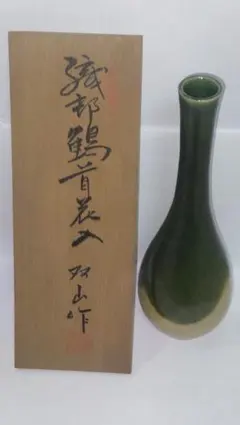 織部鶴首花入 双山作